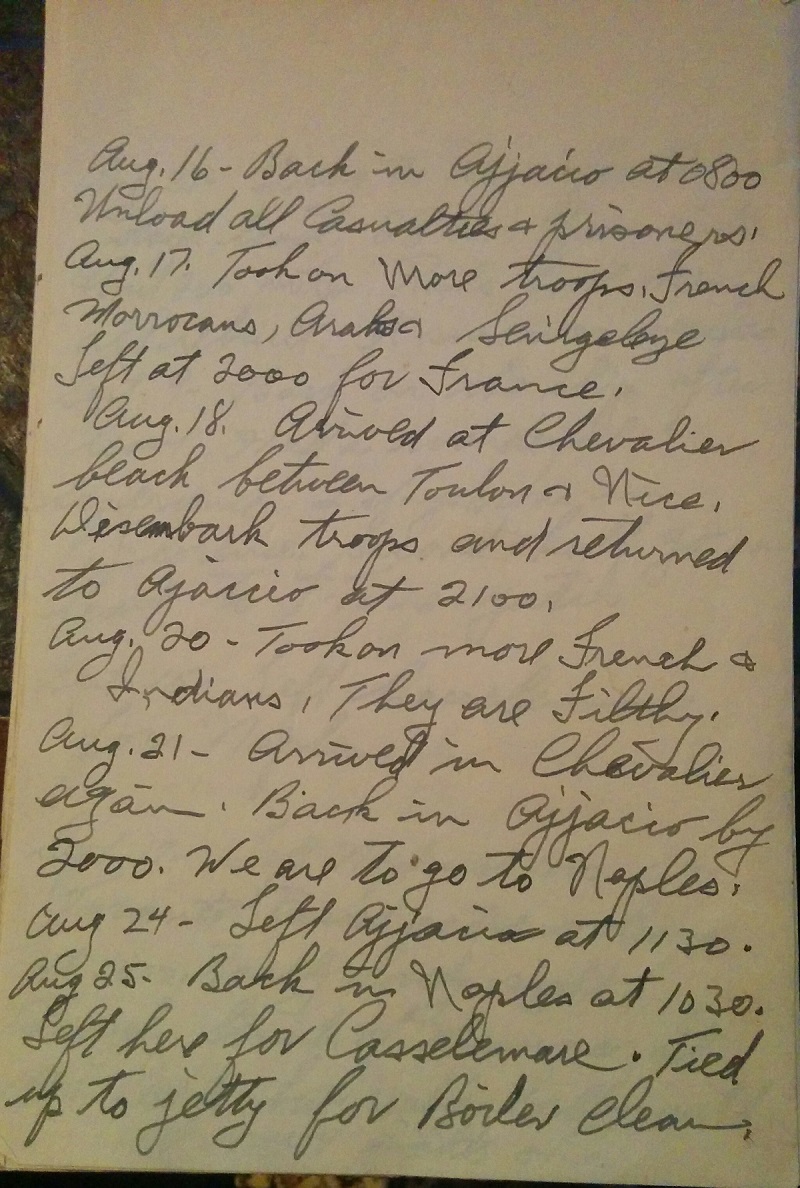 Aug. 16 - Back in Ajjacio at 0800
Unload all Casualties & prisoners.
Aug. 17. Took on More troops, French
Morrocans, Arabs &
Left at 2000 for France.
Aug. 18. Arrived at Chevalier
beach between Toulon & Nice.
Disembark troops and returned
to Ajaccio at 2100.
Aug. 20 - Took on more French &
Indians, They are Filthy.
Aug. 21 - Arrived in Chevalier
again. Back in Ajjacio by
2000. We are to go to Naples.
Aug 24 - Left Ajjacio at 1130.
Aug 25 - Back in Naples at 1030.
Left here for Casselemare. Tied
up to jetty for Boiler clean.